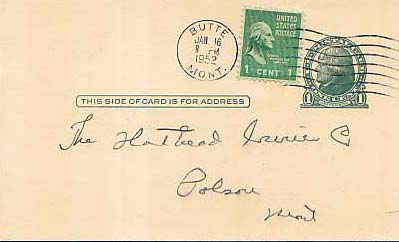 BUTTE
JAN 16
8 PM
1952
MONT.
UNITED
STATES
POSTAGE
1 CENT 1
1 1
THIS SIDE OF CARD IS FOR ADDRESS
The Flathead Courier C
Polson
Mont